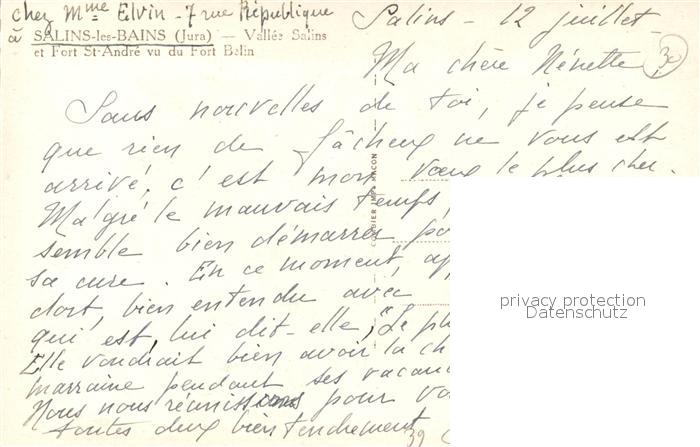 chez Mme Elvin - 7 rue République
Salins - 12 juillet
à SALINS-les-BAINS (Jura) — Vallée Salins
et Fort St-André vu du Fort Belin
Ma chère Nénette,
30
Sans nouvelles de toi, je pense
que rien de fâcheux ne vous est
arrivé, c'est mon vœu le plus cher.
Malgré le mauvais temps,
semble bien démarrer po
sa cure. En ce moment, ap
dort, bien entendu avec
qui est, lui dit-elle, "Le pl
Elle voudrait bien avoir la ch
marraine pendant ses vacanc
Nous nous réunissons pour vo
toutes deux bien tendrement
39
IMP. MACON
privacy protection
Datenschutz